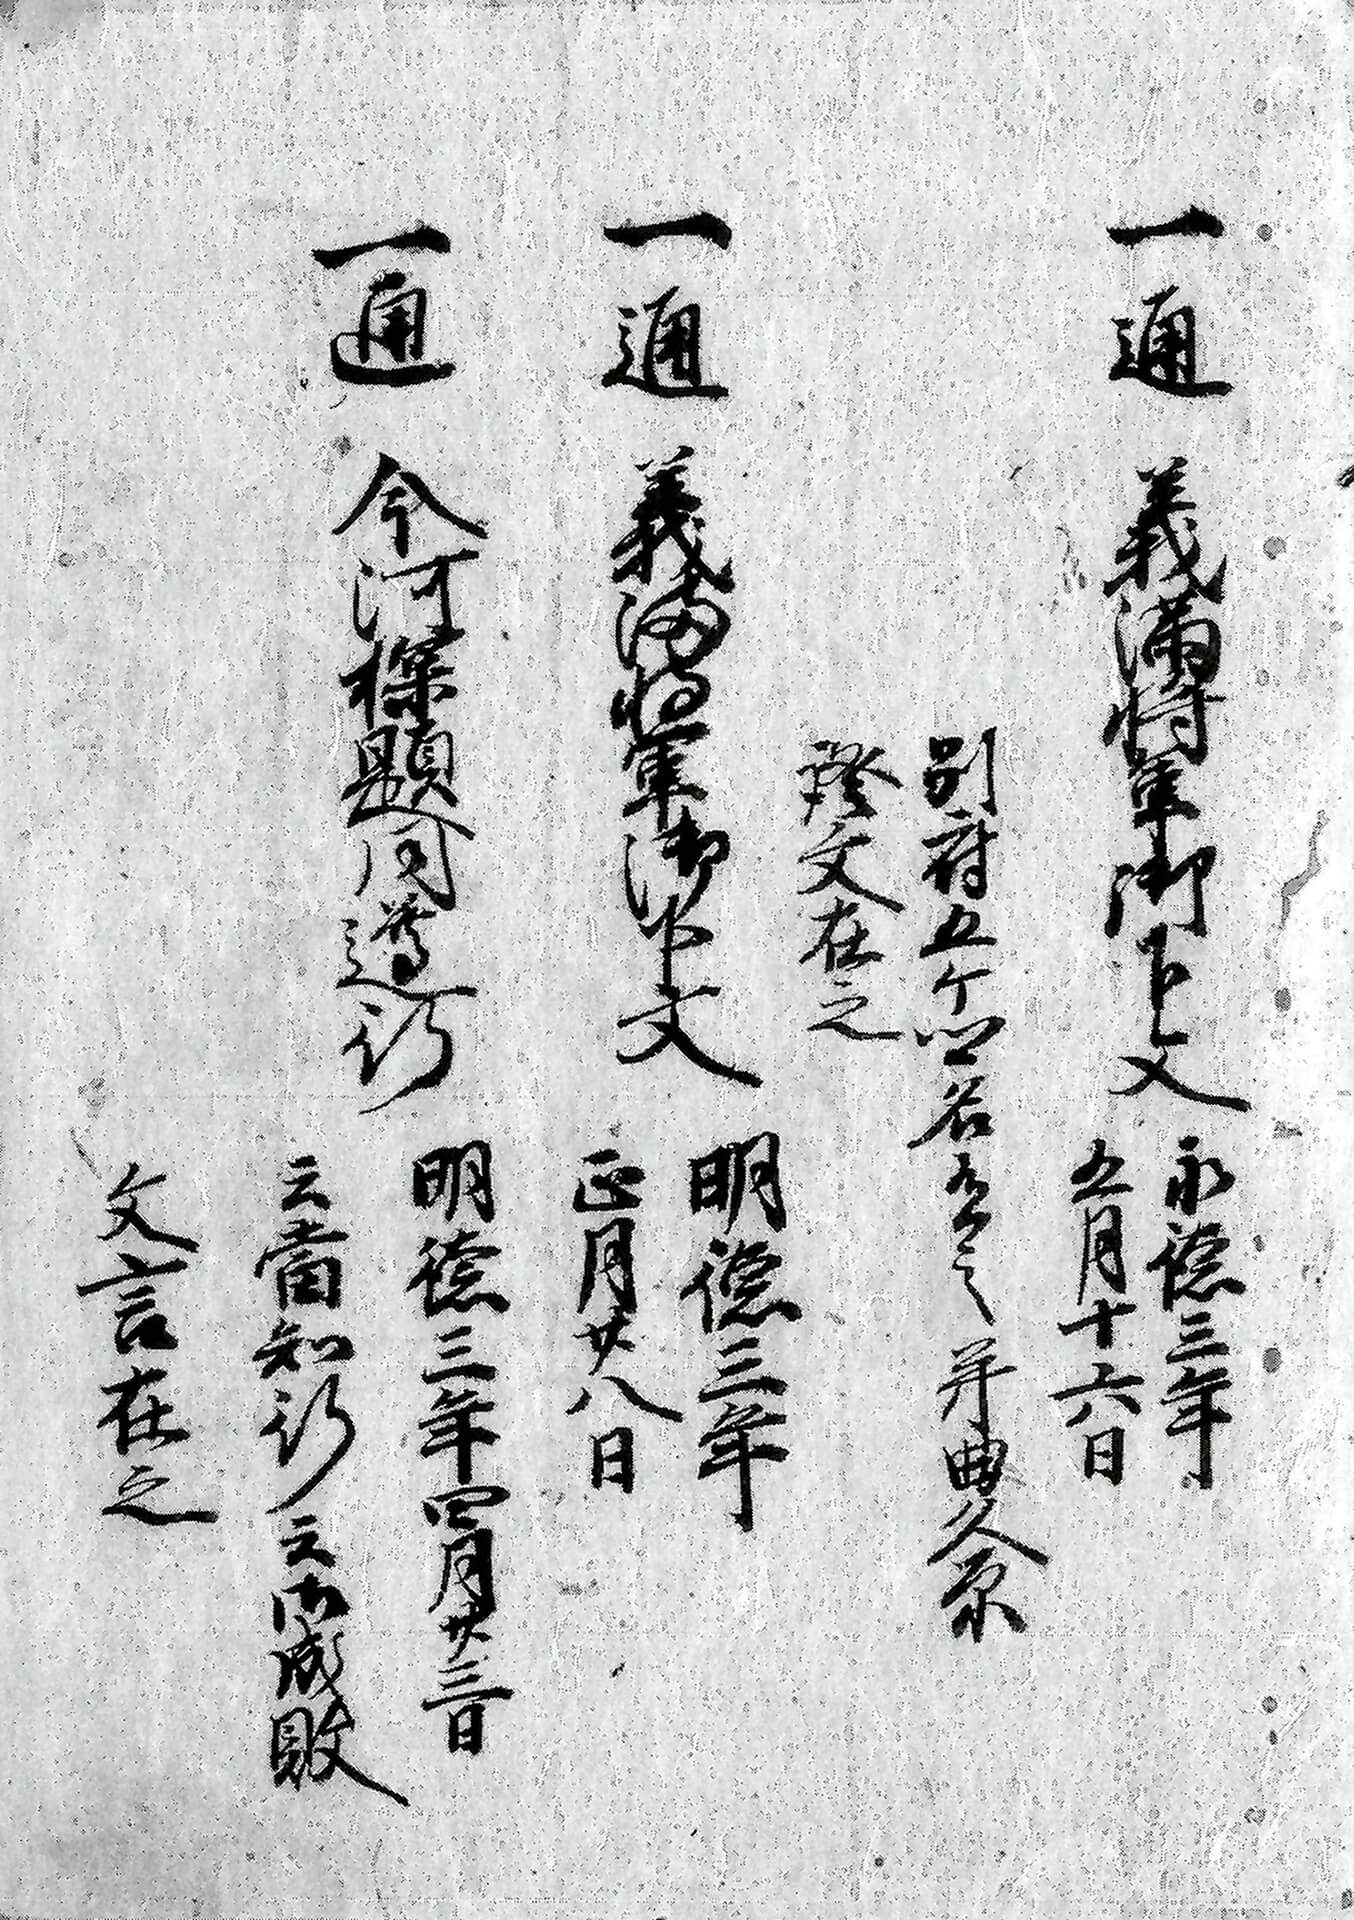 一通　義満将軍御下文　永徳三年
五月十六日
別府五ケ四名有之并典久原
證文在之
一通　義満将軍御下文　明徳三年
正月廿八日
一通　今河探題同遵行　明徳三年四月廿三日
云當知行云御成敗
文言在之